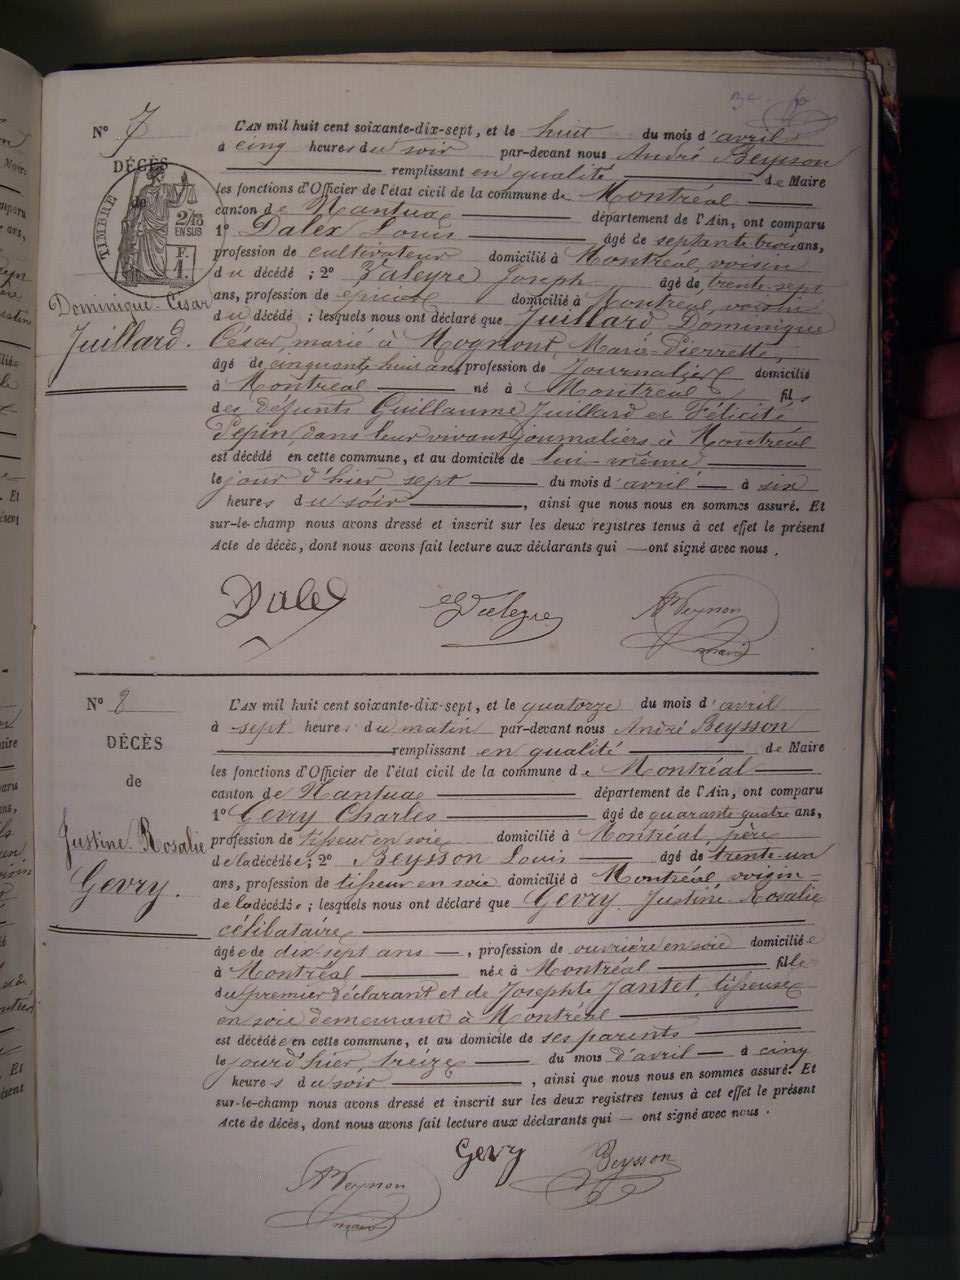 N° 7
DÉCÈS
de
TIMBRE
2/10
EN SUS
F.
1.
Dominique-César
Juillard.
L'AN mil huit cent soixante-dix-sept, et le huit du mois d'avril
à cinq heures du soir par-devant nous André Beysson
remplissant en qualité de Maire
les fonctions d'Officier de l'état civil de la commune de Montréal
canton de Nantua département de l'Ain, ont comparu
1° Dalex Louis âgé de septante trois ans,
profession de cultivateur domicilié à Montréal, voisin
du décédé ; 2° Joseph âgé de trente-sept
ans, profession de épicier domicilié à Montréal, voisin
du décédé ; lesquels nous ont déclaré que Juillard Dominique
César, marié à Mogmont, Marie-Pierrette,
âgé de cinquante huit ans, profession de Journalier domicilié
à Montréal né à Montréal fils
des défunts Guillaume Juillard et Félicité
Pepin, dans leur vivant journaliers à Montréal
est décédé en cette commune, et au domicile de lui-même
le jour d'hier, sept du mois d'avril à six
heures du soir, ainsi que nous nous en sommes assuré. Et
sur-le-champ nous avons dressé et inscrit sur les deux registres tenus à cet effet le présent
Acte de décès, dont nous avons fait lecture aux déclarants qui ont signé avec nous.
Dalex
N° 8
DÉCÈS
de
Justine Rosalie
Gevry.
L'AN mil huit cent soixante-dix-sept, et le quatorze du mois d'avril
à sept heures du matin par-devant nous André Beysson
remplissant en qualité de Maire
les fonctions d'Officier de l'état civil de la commune de Montréal
canton de Nantua département de l'Ain, ont comparu
1° Gevry Charles âgé de quarante-quatre ans,
profession de tisseur en soie domicilié à Montréal, père
de la décédée ; 2° Beysson Louis âgé de trente-un
ans, profession de tisseur en soie domicilié à Montréal voisin
de la décédée ; lesquels nous ont déclaré que Gevry Justine Rosalie
célibataire
âgée de dix-sept ans, profession de ouvrière en soie domiciliée
à Montréal née à Montréal fille
du premier déclarant et de Josephte Jantet, tisseuse
en soie demeurant à Montréal
est décédée en cette commune, et au domicile de ses parents
le jourd'hier, treize du mois d'avril à cinq
heures du soir, ainsi que nous nous en sommes assuré. Et
sur-le-champ nous avons dressé et inscrit sur les deux registres tenus à cet effet le présent
Acte de décès, dont nous avons fait lecture aux déclarants qui ont signé avec nous.
Gevry Beysson